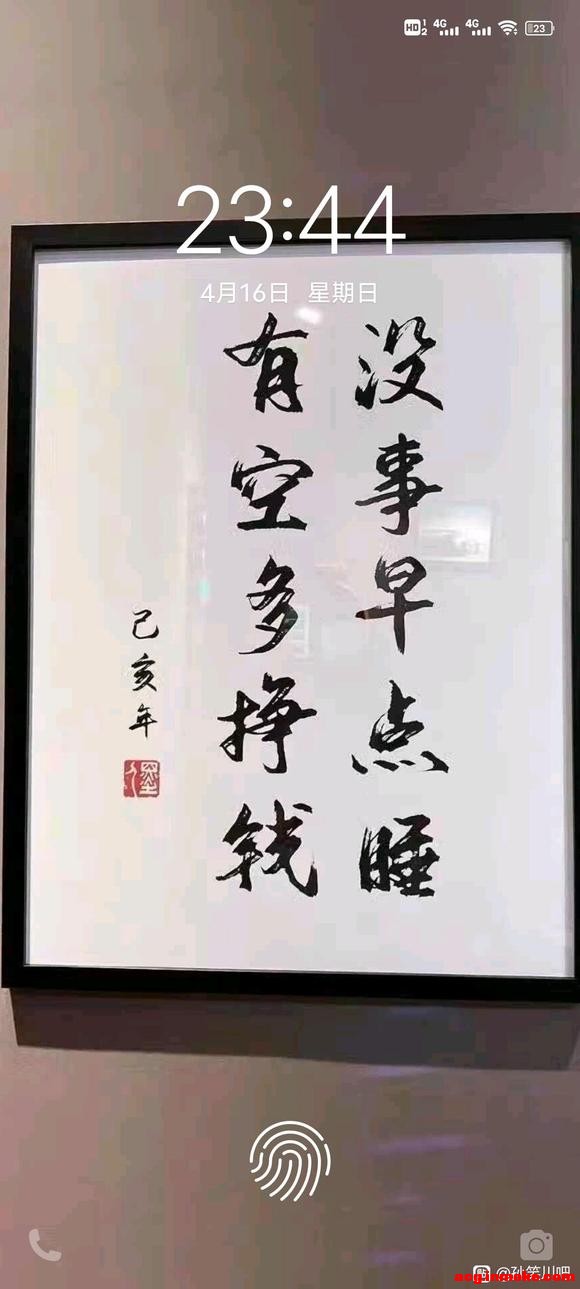 HD 1 2 4G 4G 23
23:44
4月16日 星期日
没事早点睡
有空多挣钱
己亥年
@孙笑川吧